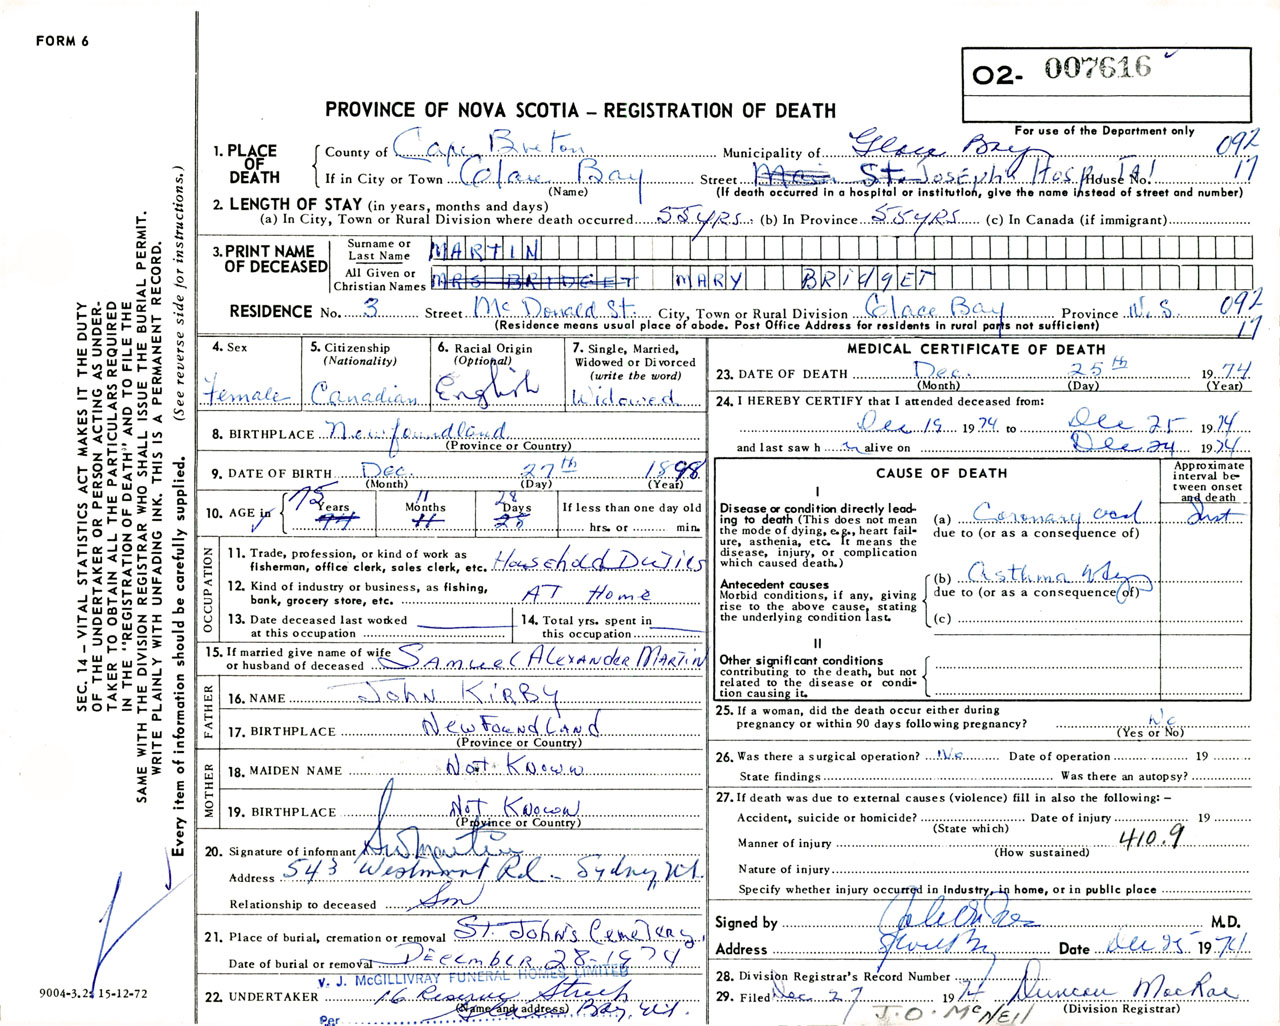 FORM 6
O2- 007616
PROVINCE OF NOVA SCOTIA – REGISTRATION OF DEATH
For use of the Department only
1. PLACE OF DEATH
County of Cape Breton Municipality of Glace Bay 092
If in City or Town Glace Bay Street Main St. Joseph's Hospital House No. 17
(Name) (If death occurred in a hospital or institution, give the name instead of street and number)
2. LENGTH OF STAY (in years, months and days)
(a) In City, Town or Rural Division where death occurred 55 yrs. (b) In Province 55 yrs (c) In Canada (if immigrant)
3. PRINT NAME OF DECEASED
Surname or Last Name MARTIN
All Given or Christian Names MRS BRIDGET MARY BRIDGET
RESIDENCE No. 3 Street McDonald St. City, Town or Rural Division Glace Bay Province N.S. 092
(Residence means usual place of abode. Post Office Address for residents in rural parts not sufficient) 17
4. Sex
Female
5. Citizenship
(Nationality)
Canadian
6. Racial Origin
(Optional)
English
7. Single, Married,
Widowed or Divorced
(write the word)
Widowed
8. BIRTHPLACE Newfoundland
(Province or Country)
9. DATE OF BIRTH Dec. 27th 1898
(Month) (Day) (Year)
10. AGE in
75 11 28
Years Months Days
11 28
If less than one day old
hrs. or min.
OCCUPATION
11. Trade, profession, or kind of work as
fisherman, office clerk, sales clerk, etc. Household Duties
12. Kind of industry or business, as fishing,
bank, grocery store, etc. AT Home
13. Date deceased last worked
at this occupation
14. Total yrs. spent in
this occupation
15. If married give name of wife
or husband of deceased Samuel Alexander Martin
FATHER
16. NAME John Kirby
17. BIRTHPLACE Newfoundland
(Province or Country)
MOTHER
18. MAIDEN NAME Not Known
19. BIRTHPLACE Not Known
(Province or Country)
20. Signature of informant
Address 543 Westmount Rd. Sydney, N.S.
Relationship to deceased Son
21. Place of burial, cremation or removal St. John's Cemetery
Date of burial or removal December 28-1974
V. J. McGILLIVRAY FUNERAL HOMES LIMITED
22. UNDERTAKER 16 Reserve Street
(Name and address) Glace Bay, N.S.
Per
MEDICAL CERTIFICATE OF DEATH
23. DATE OF DEATH Dec. 25th 1974
(Month) (Day) (Year)
24. I HEREBY CERTIFY that I attended deceased from:
Dec 19 1974 to Dec 25 1974
and last saw h alive on Dec 24 1974
CAUSE OF DEATH
Approximate interval between onset and death
I
Disease or condition directly leading to death (This does not mean the mode of dying, e.g., heart failure, asthenia, etc. It means the disease, injury, or complication which caused death.)
(a) Coronary occl
due to (or as a consequence of)
Antecedent causes
Morbid conditions, if any, giving rise to the above cause, stating the underlying condition last.
(b) Asthma
due to (or as a consequence of)
(c)
II
Other significant conditions
contributing to the death, but not related to the disease or condition causing it.
25. If a woman, did the death occur either during
pregnancy or within 90 days following pregnancy? No
(Yes or No)
26. Was there a surgical operation? No Date of operation 19
State findings Was there an autopsy?
27. If death was due to external causes (violence) fill in also the following: –
Accident, suicide or homicide? Date of injury 19
(State which)
Manner of injury 410.9
(How sustained)
Nature of injury
Specify whether injury occurred in Industry, in home, or in public place
Signed by M.D.
Address Date Dec 25 1974
28. Division Registrar's Record Number
29. Filed Dec. 27 1974 Duncan MacRae
J. O. McNEIL (Division Registrar)
SEC. 14 – VITAL STATISTICS ACT MAKES IT THE DUTY
OF THE UNDERTAKER OR PERSON ACTING AS UNDER-
TAKER TO OBTAIN ALL THE PARTICULARS REQUIRED
IN THE "REGISTRATION OF DEATH" AND TO FILE THE
SAME WITH THE DIVISION REGISTRAR WHO SHALL ISSUE THE BURIAL PERMIT.
WRITE PLAINLY WITH UNFADING INK. THIS IS A PERMANENT RECORD.
Every item of information should be carefully supplied. (See reverse side for instructions.)
9004-3.2: 15-12-72